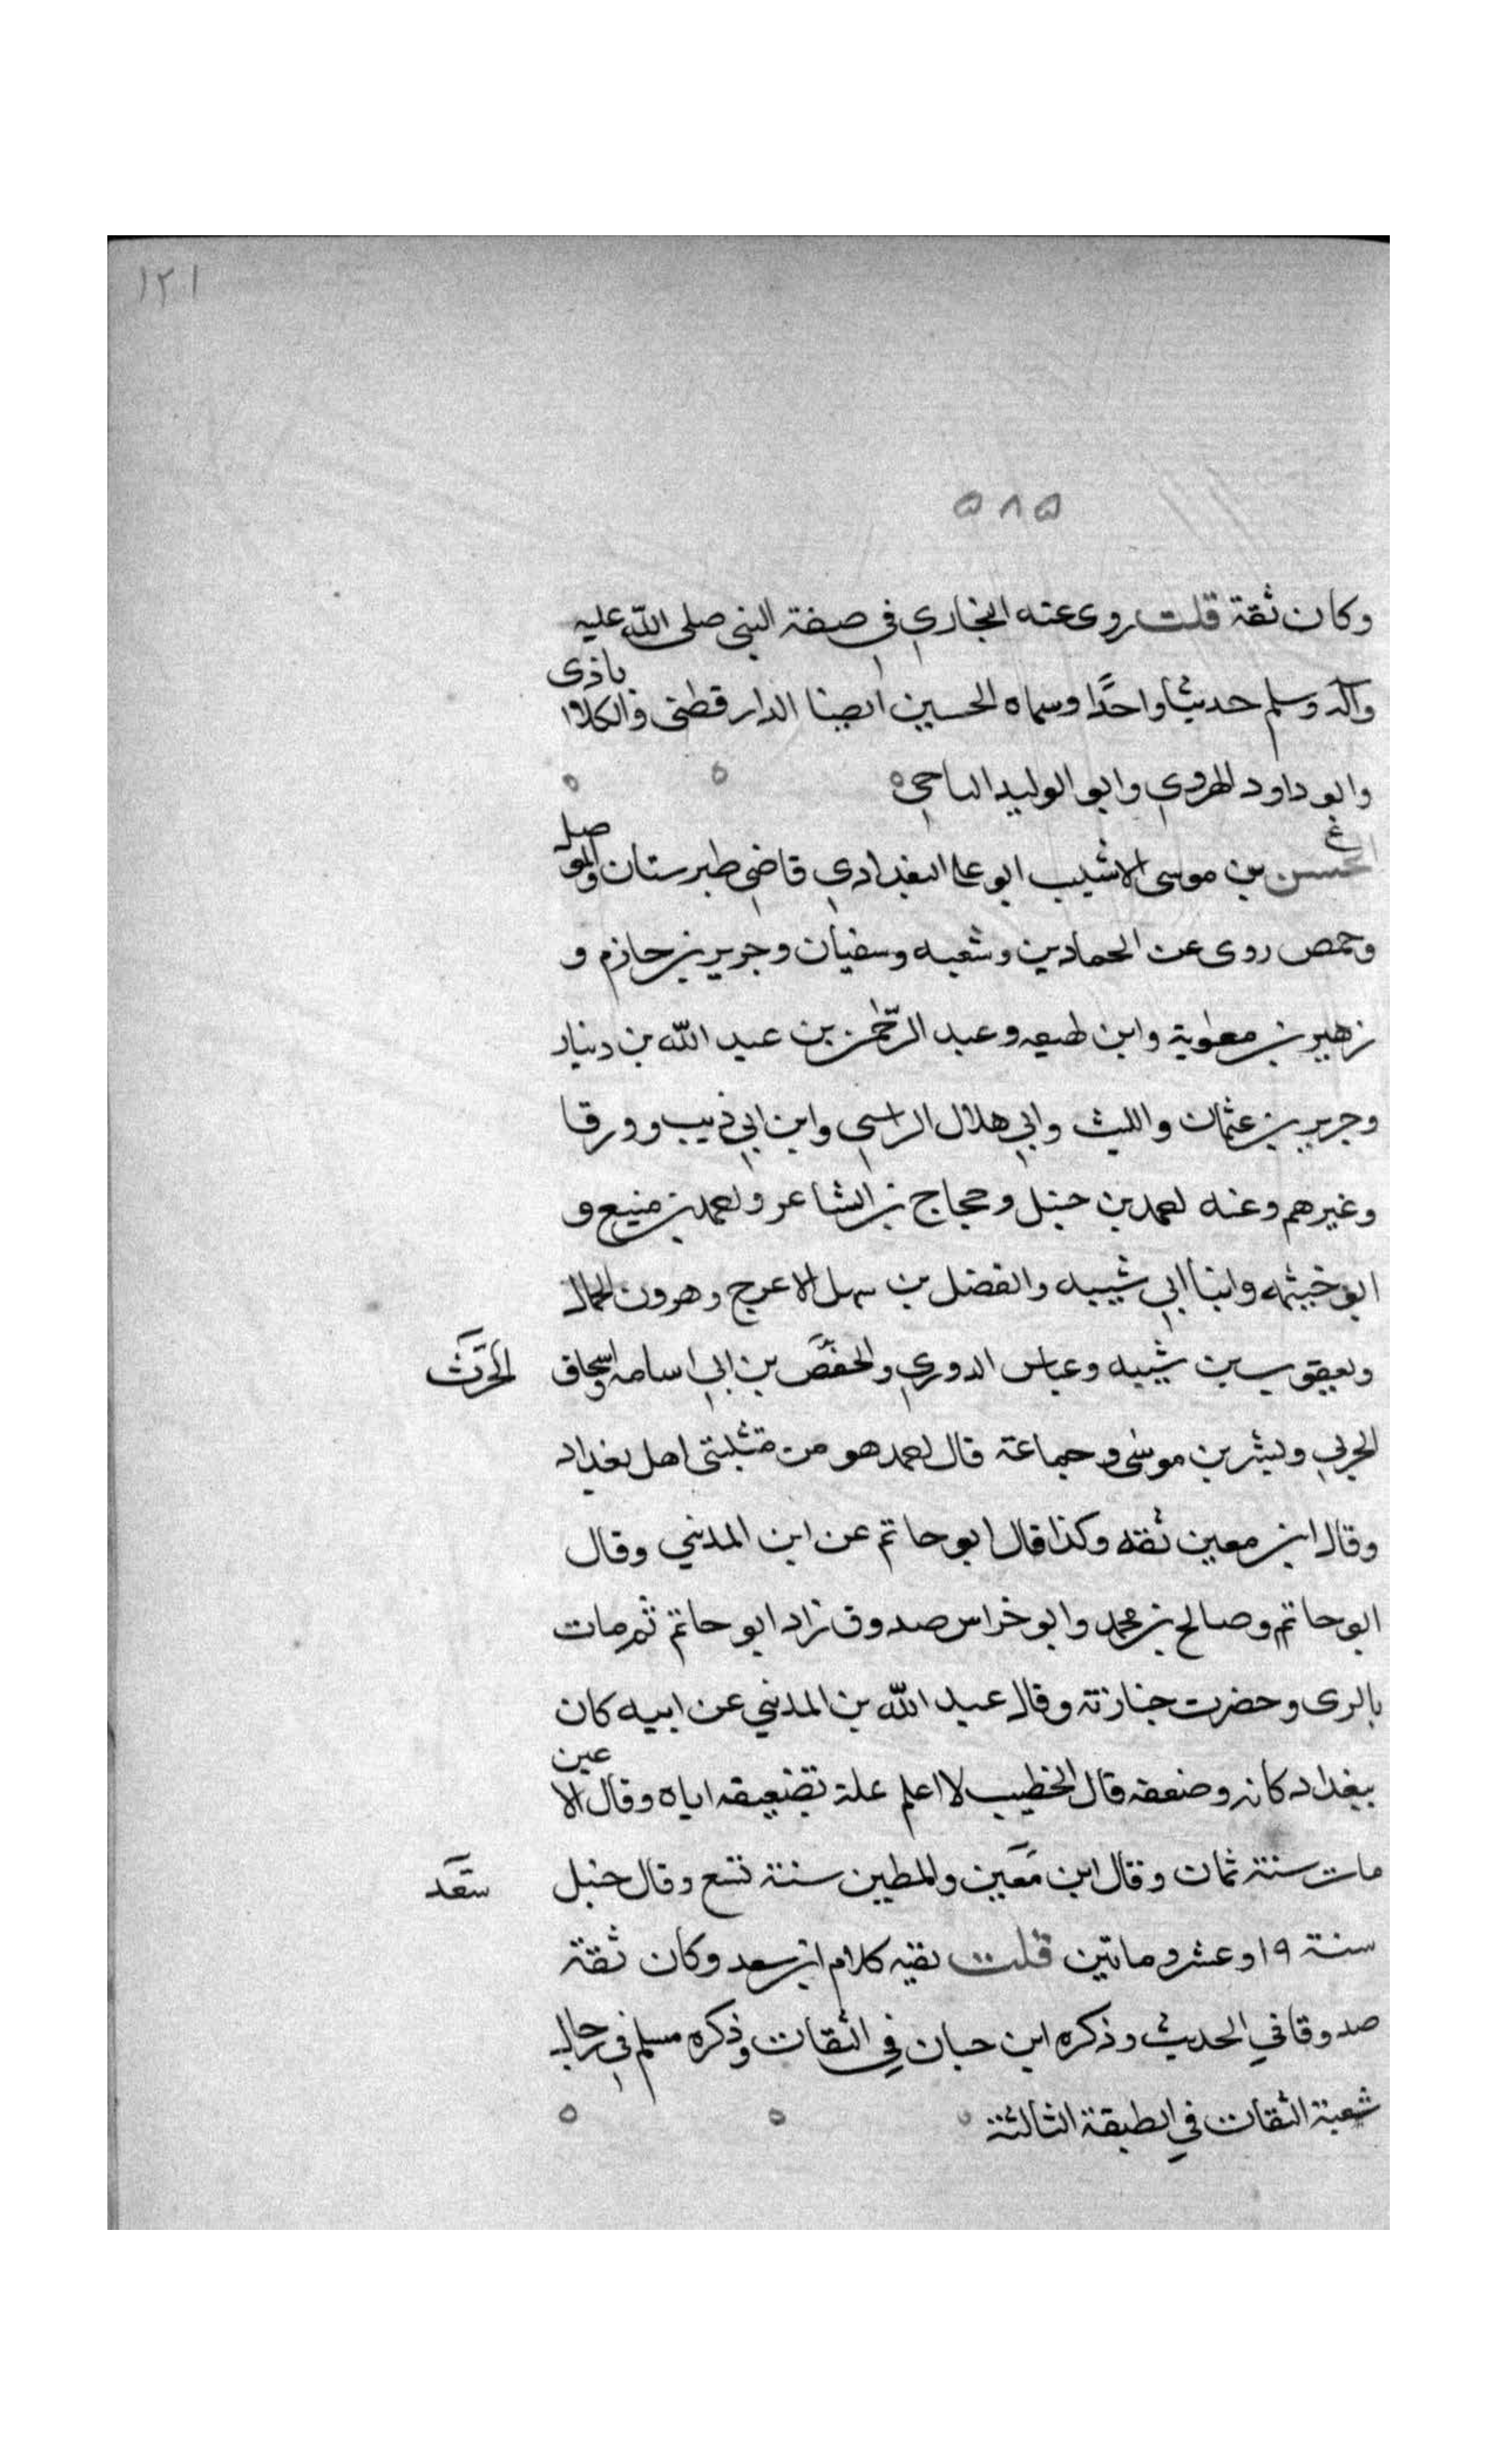 ١٢١
٥٨٥
وكان ثقة قلت روى عنه البخاري في صفة النبي صلى الله عليه
وآله وسلم حديثا واحدًا وسماه الحسين ايضا الدارقطني والكلاباذى
وابو داود الهروي وابو الوليد الباجي ه ه ه
غ
الحسن بن موسى الاشيب ابو على البغدادي قاضي طبرستان والموصل
وحمص روى عن الحمادين وشعبه وسفيان وجرير بن حازم و
زهير بن معوية وابن لهيعه وعبد الرحمن بن عبد الله بن دينار
وجرير بن عثمان والليث وابي هلال الراسبي وابن ابي ذيب وورقا
وغيرهم وعنه احمد بن حنبل وحجاج بن الشاعر واحمد بن منيع و
ابو خيثمه وابنا ابي شيبه والفضل بن سهل الاعرج وهرون الحمال
ويعقوب بن شيبه وعباس الدوري والحفص بن ابي اسامه واسحاق
الحرث
الحربي وبشر بن موسى وجماعة قال احمد هو من متثبتى اهل بغداد
وقال ابن معين ثقه وكذا قال ابو حاتم عن ابن المديني وقال
ابو حاتم وصالح بن محمد وابو خراس صدوق زاد ابو حاتم ثم مات
بالرى وحضرت جنازته وقال عبد الله بن المديني عن ابيه كان
ببغداد كانه وضعفه قال الخطيب لا اعلم علة تضعيفه اياه وقال الاعين
مات سنة ثمان وقال ابن معين والمطين سنة تسع وقال حنبل
سعد
سنة ١٩ او عشر وماتين قلت بقيه كلام ابن سعد وكان ثقة
صدوقا في الحديث وذكره ابن حبان في الثقات وذكره مسلم في رجال
شعبة الثقات في الطبقة الثالثة ه ه ه